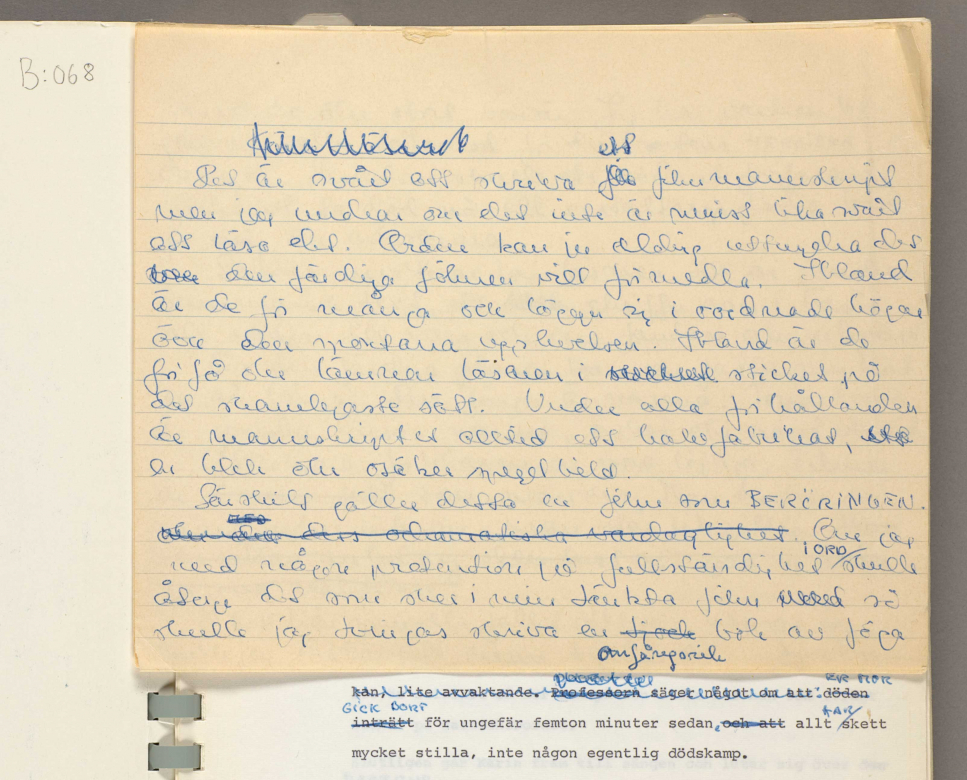 B:068
ett
Det är svårt att skriva filmmanuskript
men jag undrar om det inte är minst lika svårt
att läsa det. Orden kan ju aldrig uttrycka det
den färdiga filmen vill förmedla. Ibland
är de för många och lägger sig i oordnade högar
över den spontana upplevelsen. Ibland är de
för få och lämnar läsaren i sticket på
det skamligaste sätt. Under alla förhållanden
är manuskriptet alltid ett halvfabrikat,
en blek och osäker spegelbild.
Särskilt gäller detta en film som BERÖRINGEN.
den odramatiska vardaglighet. Om jag
i ORD
med någon pretention på fullständighet skulle
återge det som sker i min tänkta film så
skulle jag tvingas skriva en tjock bok av föga
ER MOR
kan, lite avvaktande. Professorn säger något om att döden
GICK BORT HAR
inträtt för ungefär femton minuter sedan, och att allt skett
mycket stilla, inte någon egentlig dödskamp.